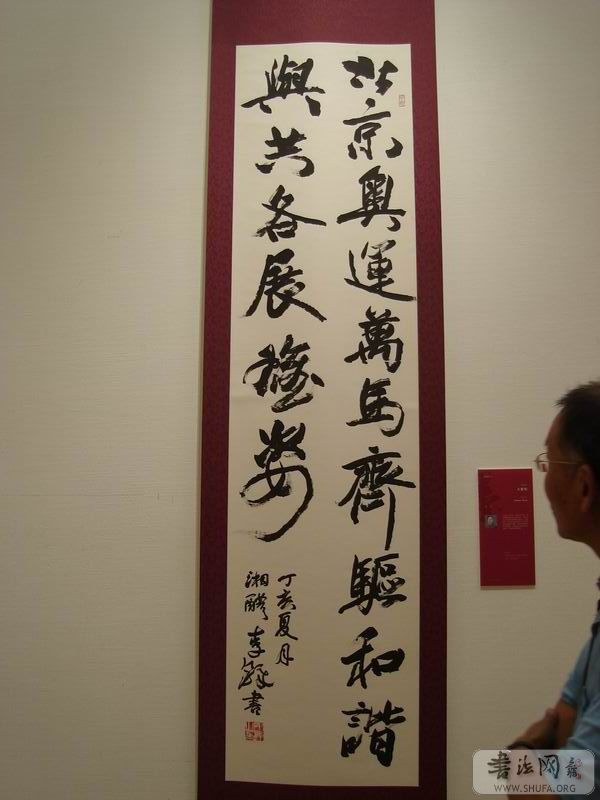 北京奧運萬馬齊驅和諧
與共各展姿
丁亥夏月
湘醴李鐸書
書法网
WWW.SHUFA.ORG